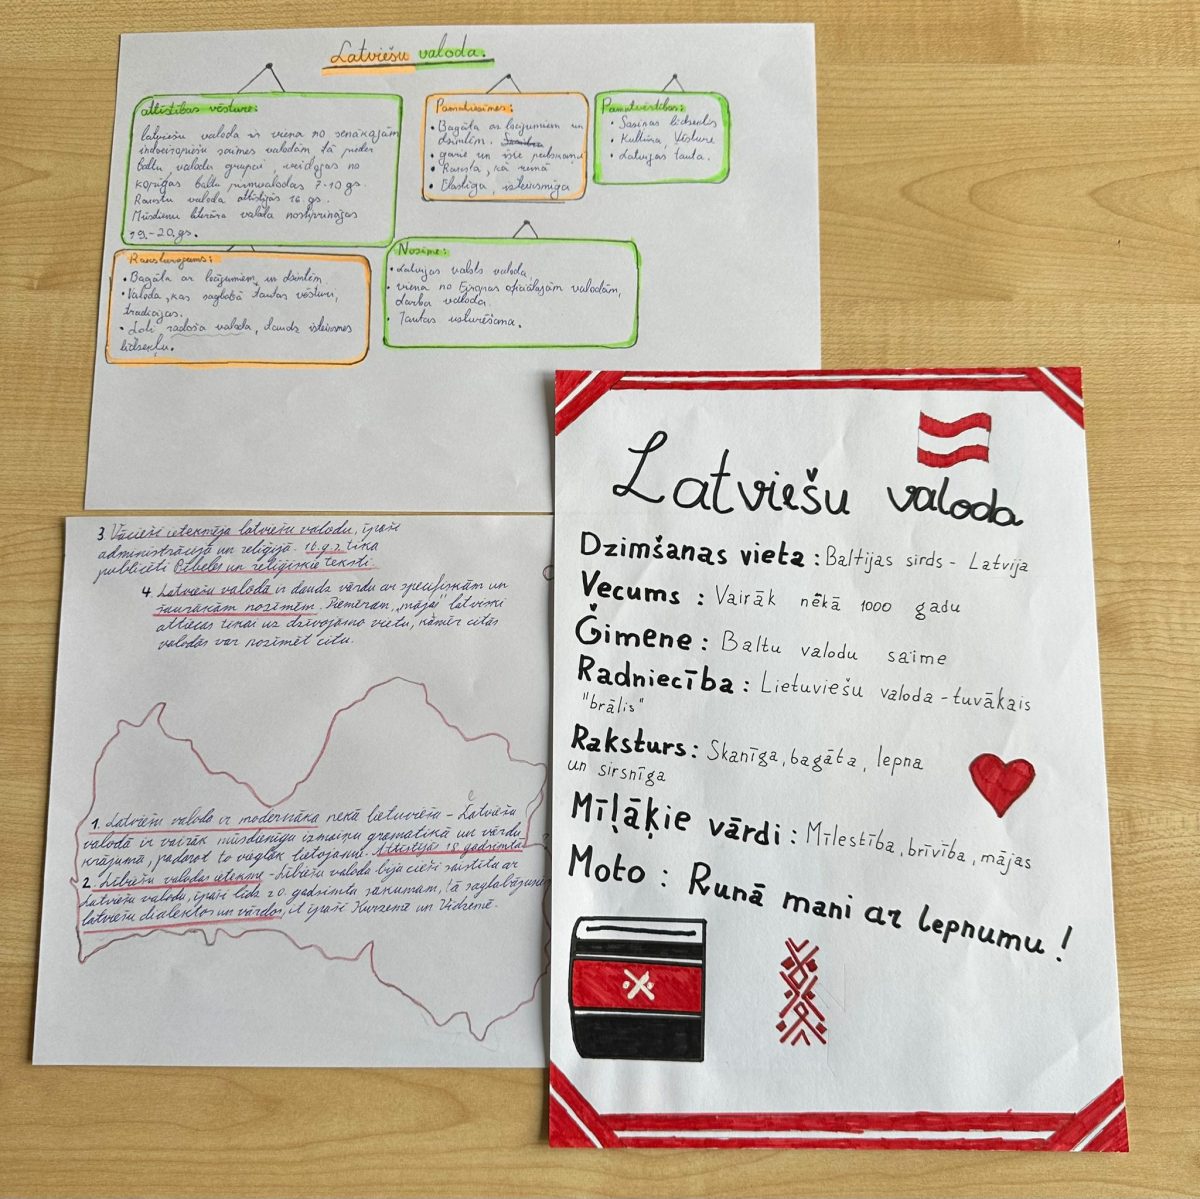 Latviešu valoda.
attīstības vēsture:
latviešu valoda ir viena no senākajām
indoeiropiešu saimes valodām tā pieder
baltu valodu grupai, veidojas no
kopīgas baltu pirmvalodas 7-10 gs.
Rakstu valoda attīstījās 16. gs.
Mūsdienu literāra valoda nostiprinājas
19.-20.gs.
Pamatiezīmes:
• Bagāta ar locījumiem un
dzintēm.
• garie un īsie patskaņi
• Raksta, kā runā
• Elastīga, izteiksmīga
Pamatvērtības:
• Saziņas līdzeklis
• Kultūra, Vēsture
• Latvijas tauta.
Raksturojums:
• Bagāta ar locījumiem, un dzintēm
• Valoda, kas saglabā tautas vēsturi,
tradīcijas.
• Ļoti radoša valoda, daudz izteiksmes
līdzekļu.
Nozīme:
• Latvijas valsts valoda,
• viena no Eiropas oficiālajām valodām,
darba valoda.
• Tautas uzturēšana.
3. Vācieši ietekmēja latviešu valodu, īpaši
administrācijā un reliģijā. 16.g.s. tika
publicēti Bībeles un reliģiskie teksti.
4. Latviešu valodā ir daudz vārdu ar specifiskām un
šaurākām nozīmēm. Piemēram, "mājas" latviski
attiecas tikai uz dzīvojamo vietu, kamēr citās
valodās var nozīmēt citu.
1. Latviešu valoda ir modernāka nekā lietuviešu - Latviešu
valodā ir vairāk mūsdienīgu izmaiņu gramatikā un vārdu
krājumā, padarot to vieglāk lietojamu. Attīstījās 18 gadsimtā.
2. Lībiešu valodas ietekme - Lībiešu valoda bija cieši saistīta ar
Latviešu valodu, īpaši līdz 20. gadsimta sākumam, tā saglabājusies
latviešu dialektos un vārdos, it īpaši Kurzemē un Vidzemē.
Latviešu valoda
Dzimšanas vieta : Baltijas sirds - Latvija
Vecums : Vairāk nēkā 1000 gadu
Ģimene : Baltu valodu saime
Radniecība : Lietuviešu valoda - tuvākais
"brālis"
Raksturs : Skanīga, bagāta, lepna
un sirsnīga
Mīļāķie vārdi : Mīlestība, brīvība, mājas
Moto : Runā mani ar lepnumu !